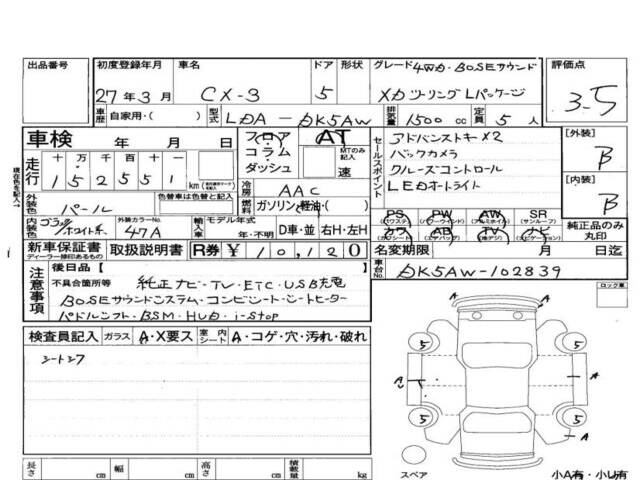 出品番号 初度登録年月 車名 ドア 形状 グレード 4WD・BOSEサウンド 評価点
27年3月 CX-3 5 XDツーリングLパッケージ 3.5
車歴 自家用・( ) 型式 LDA-DK5AW 排気量 1500cc 定員 5人
車検 年 月 日 フロア コラム ダッシュ AT MTのみ記入 速
セールスポイント アドバンストキーX2
バックカメラ
クルーズコントロール
LEDオートライト
[外装] B
[内装] B
現在色を記入→
走行 十 万 千 百 十 一
152551km
冷房 AAC
外装色 パール 色替車は色替と記入
燃料 ガソリン・軽油・( )
内装色 ブラック/ホワイト系 外装カラーNo. 47A 輸入車 モデル年式 年・不明 D車・並 右H・左H
PS (パワステ) PW (パワーウインド) AW (アルミホイール) SR (サンルーフ)
カワ (カワシート) AB (エアバッグ) TV (地デジ) ナビ (ナビゲーション)
純正品のみ丸印
新車保証書 ディーラー捺印あるもの 取扱説明書 R券 ¥10,120 名変期限 月 日迄
注意事項 後日品【 】
不具合箇所等 純正ナビ・TV・ETC・USB充電
BOSEサウンドシステム・コンビシート・シートヒーター
パドルシフト・BSM・HUD・i-stop
車台No. DK5AW-102839
ロック車
検査員記入 ガラス A・X要ス 室内シート A・コゲ・穴・汚れ・破れ
シートシワ
5 5
A A
5 5
A
スペア
長さ cm 幅 cm 高さ cm 積載量 kg 小A有・小U有